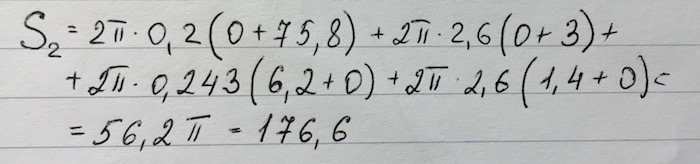 S₂ = 2π · 0,2(0+75,8) + 2π · 2,6(0+3) +
+ 2π · 0,243(6,2+0) + 2π · 2,6(1,4+0) =
= 56,2π = 176,6